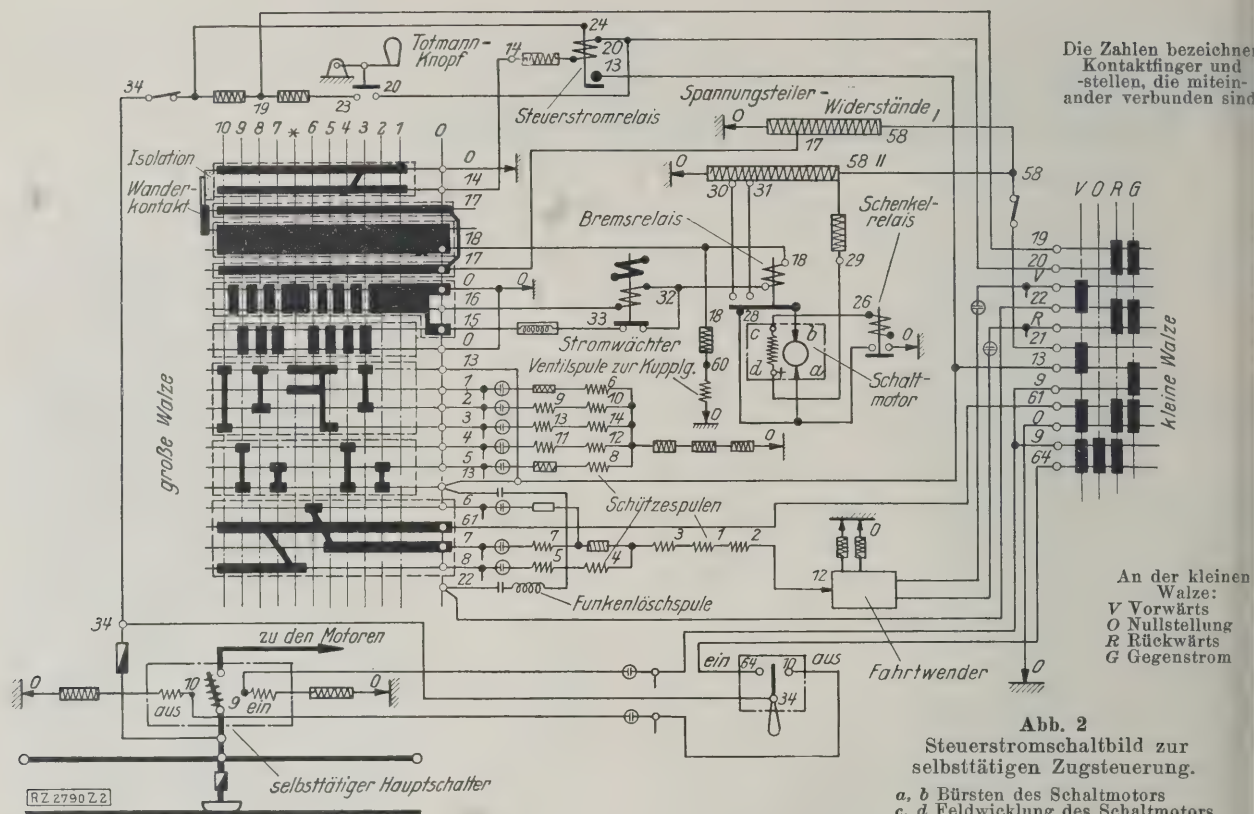 24
Totmann-
Knopf
14
20
13
Die Zahlen bezeichnen
Kontaktfinger und
-stellen, die mitein-
ander verbunden sind
34
19
23
20
Steuerstromrelais
Spannungsteiler-Widerstände I
0
17
58
10 9 8 7 * 6 5 4 3 2 1 0
Isolation
Wander-
kontakt
0
14
17
18
17
0
16
15
0
13
1
2
3
4
5
13
6
61
7
8
22
große Walze
0
58 II
30
31
58
Bremsrelais
Schenkel-
relais
18
29
26
0
32
33
Stromwächter
28
c
b
d
a
+
Schalt-
motor
18
60
0
Ventilspule zur Kupplg.
0
6
9
10
13
14
11
12
8
0
Schützespulen
7
5
4
3
1
2
Funkenlöschspule
12
0
Fahrtwender
V O R G
19
20
V
22
R
21
13
9
61
0
9
64
kleine Walze
0
An der kleinen
Walze:
V Vorwärts
O Nullstellung
R Rückwärts
G Gegenstrom
34
zu den Motoren
0
10
aus
9
ein
0
selbsttätiger Hauptschalter
ein
64
10
aus
34
RZ 2790 Z 2
Abb. 2
Steuerstromschaltbild zur
selbsttätigen Zugsteuerung.
a, b Bürsten des Schaltmotors
c, d Feldwicklung des Schaltmotors